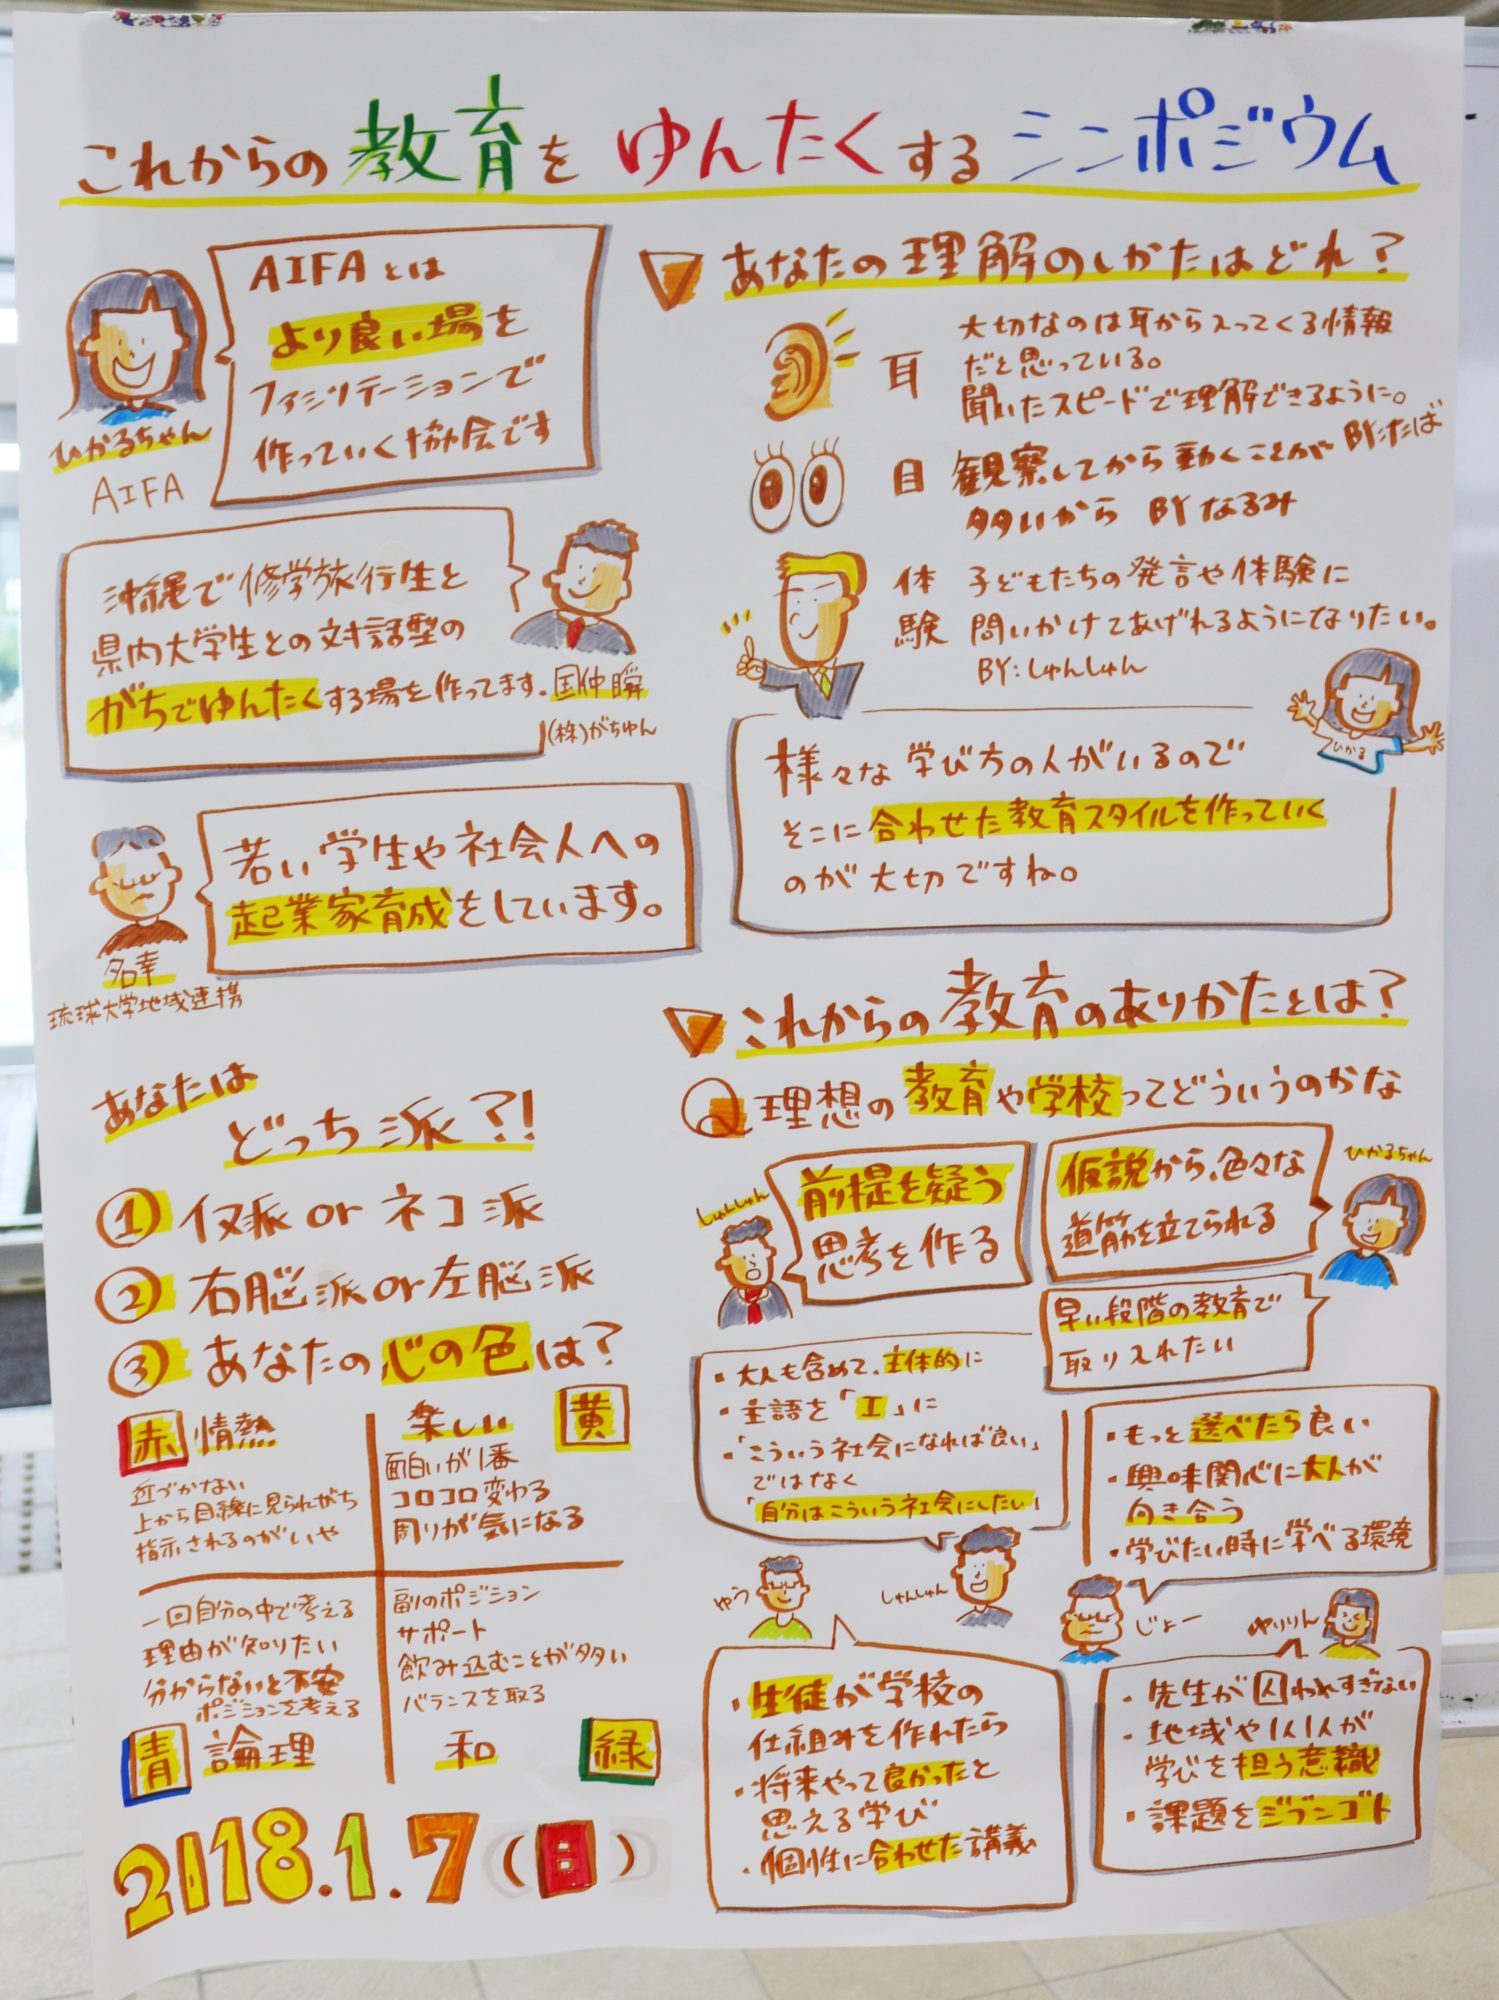 これからの教育をゆんたくするシンポジウム
AIFAとは
より良い場を
ファシリテーションで
作っていく協会です
ひかるちゃん
AIFA
沖縄で修学旅行生と
県内大学生との対話型の
がちでゆんたくする場を作ってます。
国仲瞬
(株)がちゆん
若い学生や社会人への
起業家育成をしています。
名幸
琉球大学地域連携
あなたは
どっち派?!
① イヌ派 or ネコ派
② 右脳派 or 左脳派
③ あなたの心の色は?
赤 情熱
近づかない
上から目線に見られがち
指示されるのがいや
楽しい 黄
面白いが1番
コロコロ変わる
周りが気になる
一回自分の中で考える
理由が知りたい
分からないと不安
ポジションを考える
青 論理
副のポジション
サポート
飲み込むことが多い
バランスを取る
和 緑
2018.1.7(日)
あなたの理解のしかたはどれ?
耳
大切なのは耳から入ってくる情報
だと思っている。
聞いたスピードで理解できるように。
BY:たば
目
観察してから動くことが
多いから BY なるみ
体験
子どもたちの発言や体験に
問いかけてあげれるようになりたい。
BY:しゅんしゅん
ひかる
様々な学び方の人がいるので
そこに合わせた教育スタイルを作っていく
のが大切ですね。
これからの教育のありかたとは?
Q 理想の教育や学校ってどういうのかな
しゅんしゅん
前提を疑う
思考を作る
ひかるちゃん
仮説から、色々な
道筋を立てられる
早い段階の教育で
取り入れたい
・大人も含めて、主体的に
・主語を「I」に
・「こういう社会になれば良い」
ではなく
「自分はこういう社会にしたい」
しゅんしゅん
・もっと選べたら良い
・興味関心に大人が
向き合う
・学びたい時に学べる環境
じょー
ゆう
・生徒が学校の
仕組みを作れたら
・将来やって良かったと
思える学び
・個性に合わせた講義
ゆりりん
・先生が囚われすぎない
・地域や1人1人が
学びを担う意識
・課題をジブンゴト